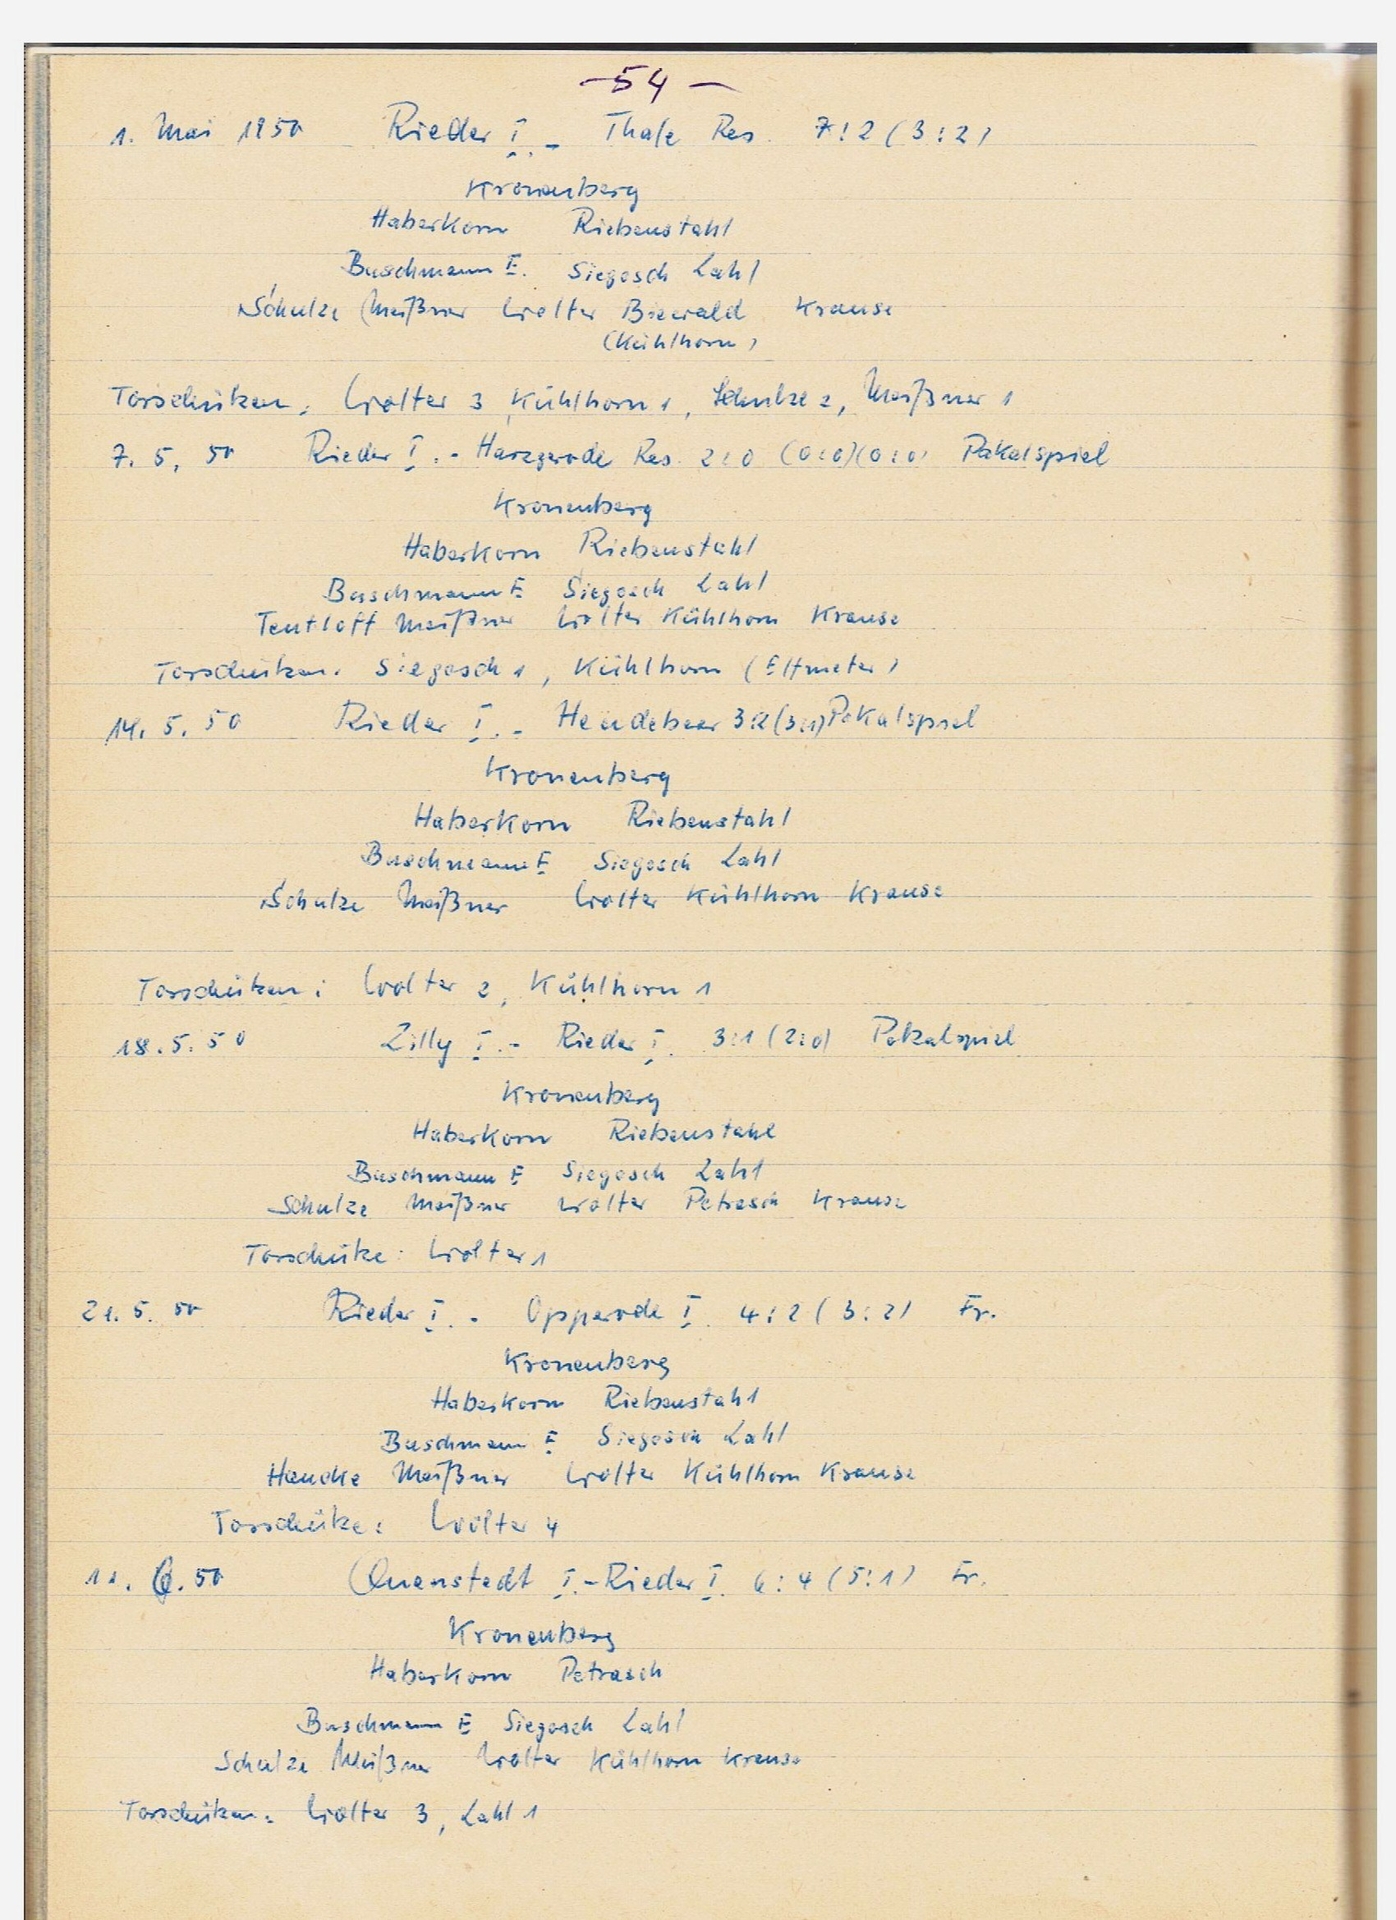 - 54 -
1. Mai 1950 Rieder I. - Thale Res. 7:2 (3:2)
Kronenberg
Haberkorn Riebenstahl
Buschmann E. Siegosch Lahl
Schulze Meißner Wolter Biewald Krause
(Kühlhorn)
Torschützen: Wolter 3, Kühlhorn 1, Schulze 2, Meißner 1
7. 5. 50 Rieder I. - Harzgerode Res. 2:0 (0:0)(0:0) Pokalspiel
Kronenberg
Haberkorn Riebenstahl
Buschmann E Siegosch Lahl
Teutloff Meißner Wolter Kühlhorn Krause
Torschützen: Siegosch 1, Kühlhorn (Elfmeter)
14. 5. 50 Rieder I. - Heudeber 3:2 (3:1) Pokalspiel
Kronenberg
Haberkorn Riebenstahl
Buschmann E Siegosch Lahl
Schulze Meißner Wolter Kühlhorn Krause
Torschützen: Wolter 2, Kühlhorn 1
18. 5. 50 Zilly I. - Rieder I. 3:1 (2:0) Pokalspiel
Kronenberg
Haberkorn Riebenstahl
Buschmann E Siegosch Lahl
Schulze Meißner Wolter Petrasch Krause
Torschütze: Wolter 1
21. 5. 50 Rieder I. - Opperode I. 4:2 (3:2) Fr.
Kronenberg
Haberkorn Riebenstahl
Buschmann E Siegosch Lahl
Hencke Meißner Wolter Kühlhorn Krause
Torschütze: Wolter 4
11. 6. 50 Quenstedt I. - Rieder I. 6:4 (5:1) Fr.
Kronenberg
Haberkorn Petrasch
Buschmann E Siegosch Lahl
Schulze Meißner Wolter Kühlhorn Krause
Torschützen: Wolter 3, Lahl 1